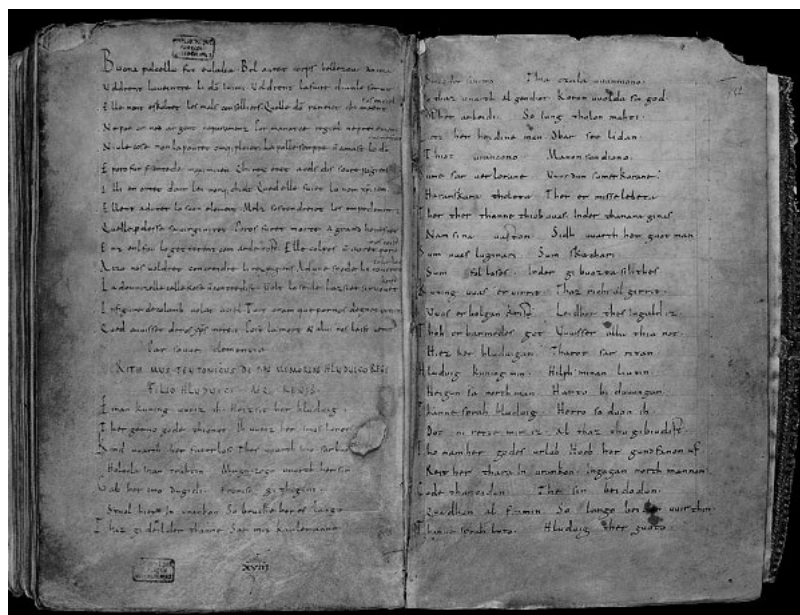 Buona pulcella fut eulalia. Bel auret corps bellezour anima
Voldrent la ueintre li dō inimi. Voldrent la faire diaule seruir
Elle nont eskoltet les mals conselliers. Quelle dō raneiet chi maent
Ne por or ned argent ne paramenz. Por manatce regiel ne preiement
Niule cose non la pouret omq; pleier. La polle sempre n̄ amast lo dō
E poro fut presentede maximiien. Chi rex eret a cels dis soure pagiens
Il li enortet dont lei nonq; chielt. Qued elle fuiet lo nom xp̄iien
Ellent adunet lo suon element. Melz sostendreiet les empedementz
Quelle perdesse sa uirginitet. Poros furet morte a grand honestet
Enz enl fou lo getterent com arde tost. Elle colpes n̄ auret poro
Aczo nos uoldret concreidre li rex pagiens. Ad une spede li roueret
La domnizelle celle kose n̄ contredist. Volt lo seule lazsier si ruouet
In figure de colomb uolat a ciel. Tuit oram que por nos degnet preier
Qued auuisset de nos xp̄s mercit Post la mort & a lui nos laist uenir
Par souue clementia
RITHMUS TEUTONICUS DE PIAE MEMORIAE HLUDUICO REGE
FILIO HLUDUICI AEQ; REGIS.
Einan kuning uueiz ih. Heizsit her hluduig.
Ther gerno gode thionot. Ih uueiz her imos lonot.
Kind uuarth her faterlos. Thes uuarth imo sar buoz
Holoda inan truhtin. Magaczogo uuarth her sin
Gab her imo dugidi. Fronisc githigini.
Stual hier in urankon. So bruche her es lango
Thaz gideilder thanne Sar mit karlemanne
XVIII
Bruoder sinemo. Thia czala uuunniono.
So thaz uuarth al gendiot. Koron uuolda sin god.
Ob her arbeidi. So iung tholon mahti.
Lietz her heidine man. Obar seo lidan.
Thiot urancono. Manon sundiono.
Sume sar uerlorane. Uuurdun sumerkorane.
Haranskara tholota. Ther er misselebeta
Ther ther thanne thiob uuas. Inder thanana ginas
Nam sina uaston. Sidh uuarth her guot man
Sum uuas luginari. Sum skachari
Sum fol loses. Inder gibuozta sih thes
Kuning uuas eruirrit. Thaz richi al girrit.
Uuas erbolgan krist. Leidhor thes ingald iz
Thoh erbarmedes got Uuisser alla thia not.
Hiez her hluduigan. Tharot sar ritan.
Hluduig kuning min. Hilph minan liutin.
Heigun sa northman Harto biduuungan
Thanne sprah hluduig. Herro so duon ih
Dot ni rette mir iz Al thaz thu gibiudist.
Tho nam her godes urlub. Huob her gundfanon uf.
Reit her thara in urankon. ingagan northmannon.
Gode thancodun The sin beidodun.
Quadhun al fromin So lango beidon uuir thin.
Thanne sprah luto. Hluduig ther guoto.